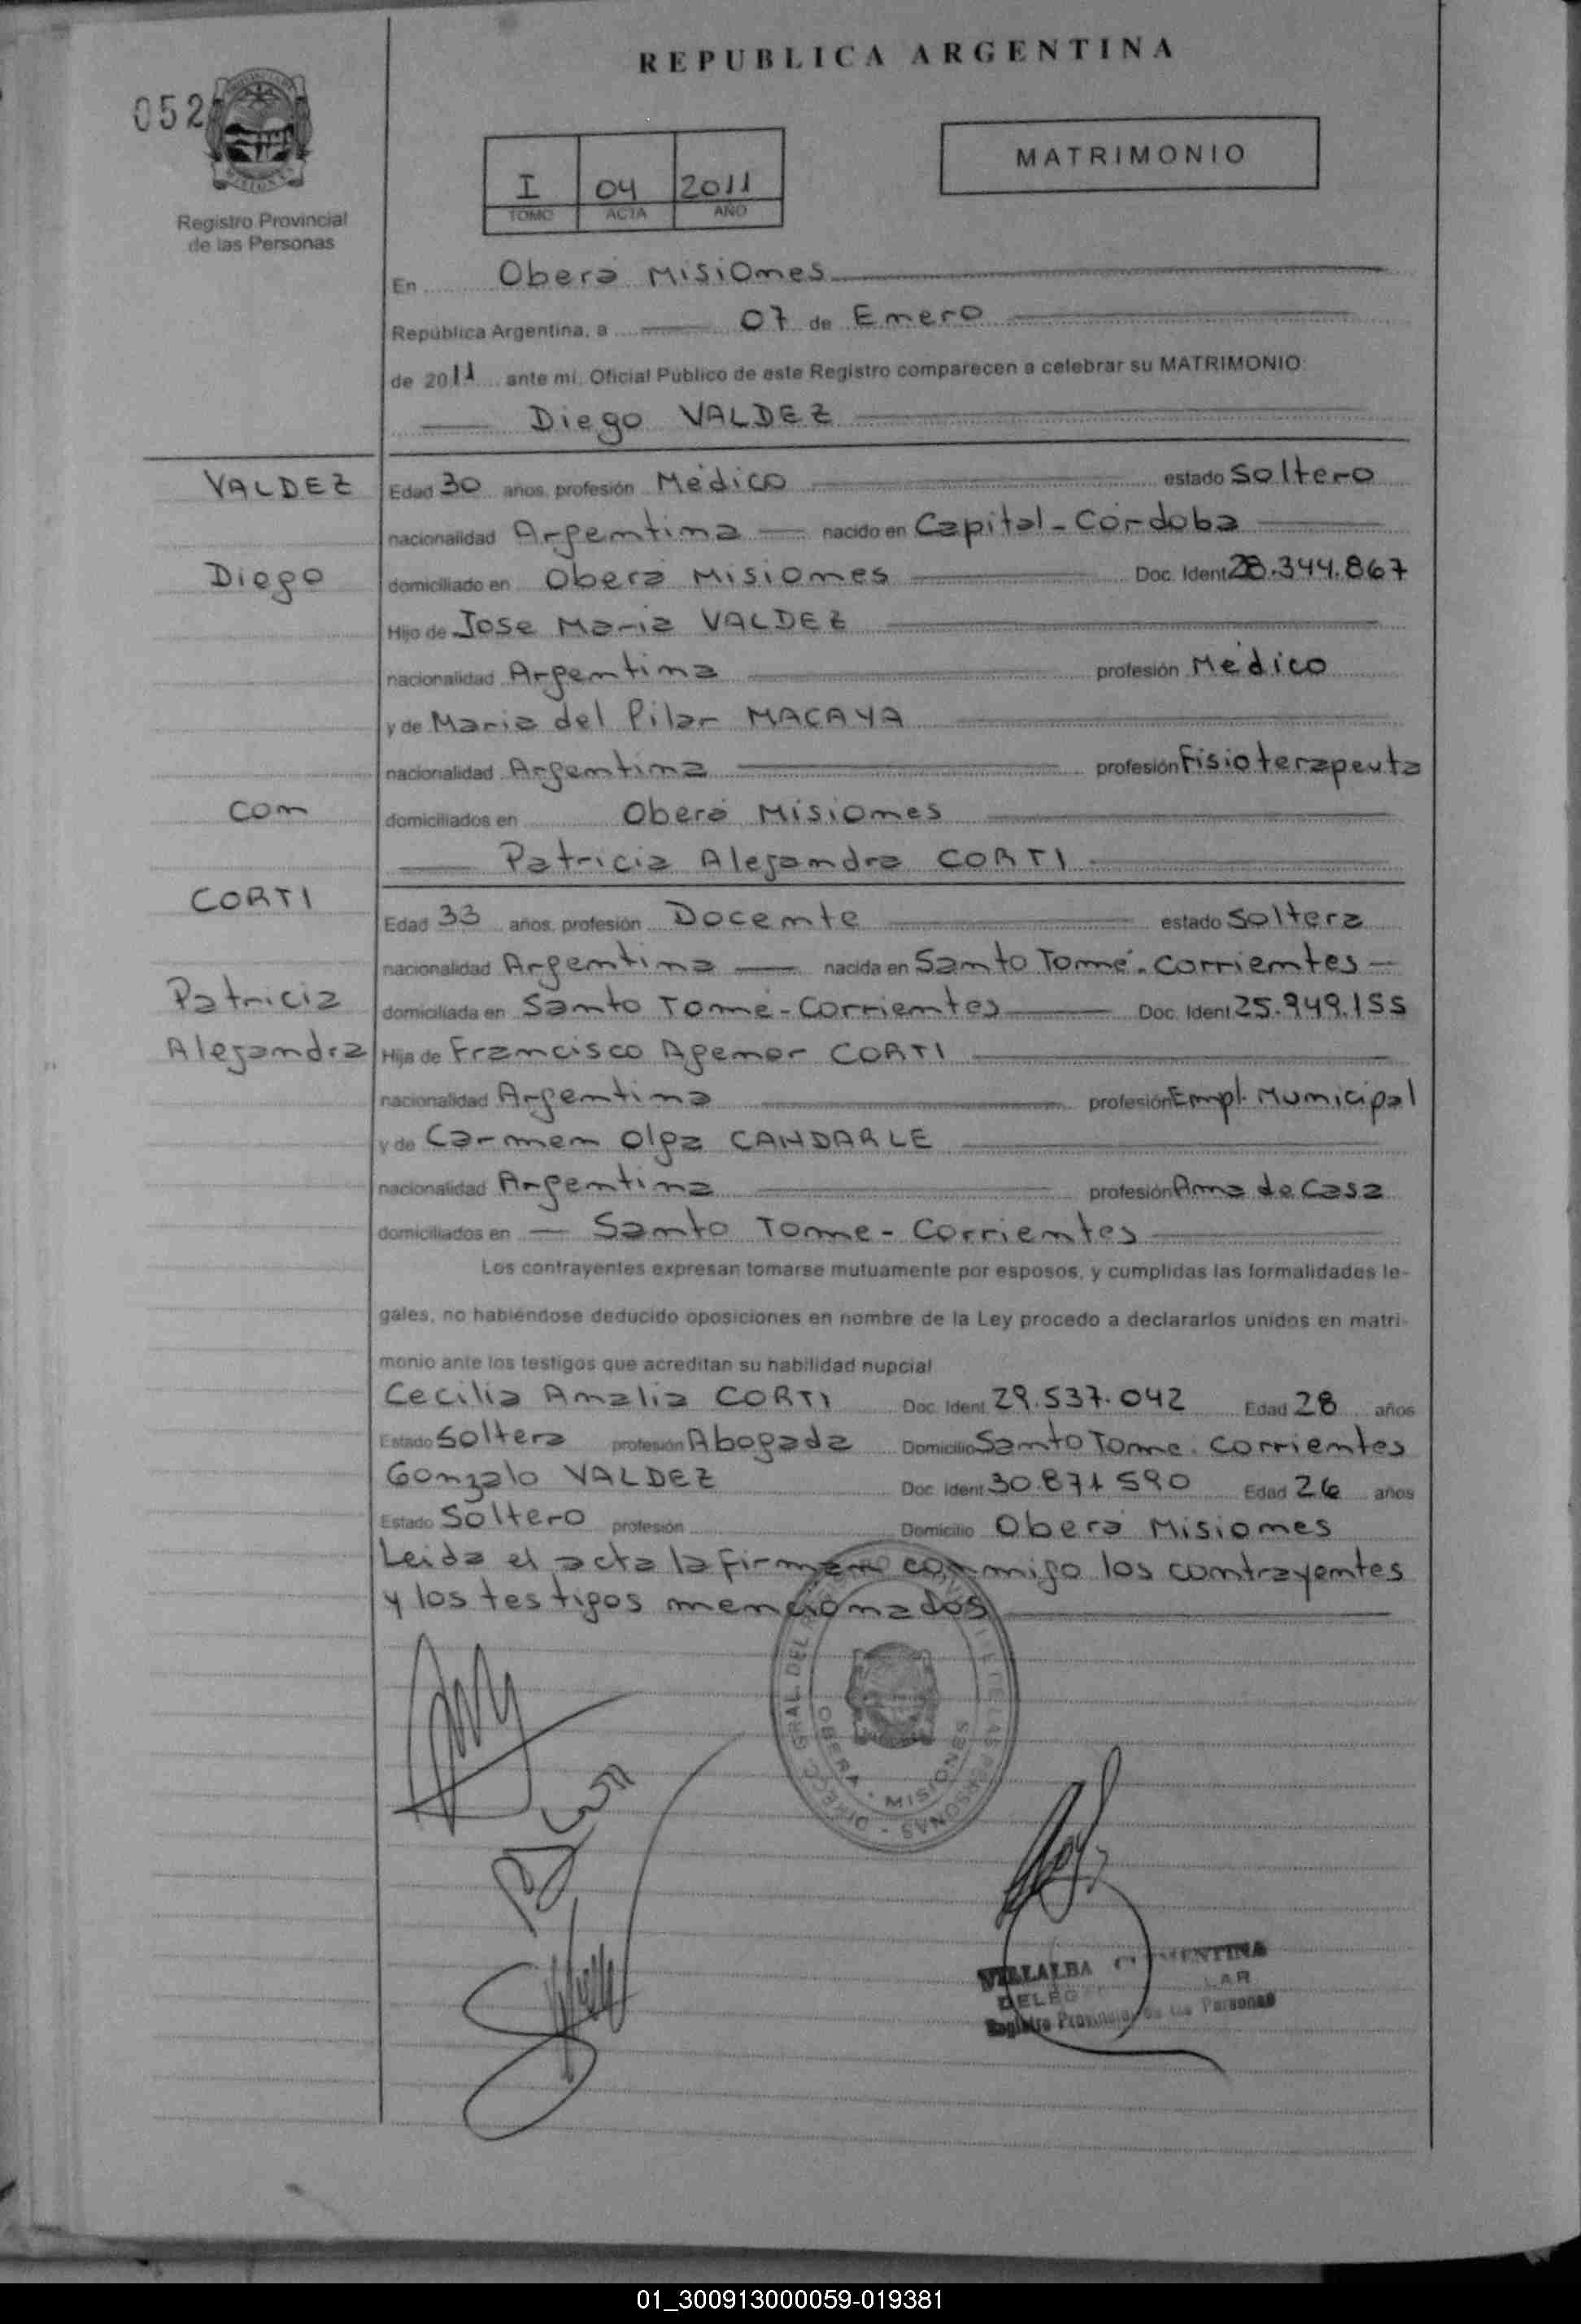 REPUBLICA ARGENTINA
052
MATRIMONIO
I 04 2011
TOMO ACTA AÑO
Registro Provincial
de las Personas
En Oberá Misiones
República Argentina, a 07 de Enero
de 2011 ante mi, Oficial Público de este Registro comparecen a celebrar su MATRIMONIO:
Diego VALDEZ
VALDEZ
Edad 30 años, profesión Médico estado Soltero
nacionalidad Argentina nacido en Capital - Córdoba
Diego
domiciliado en Oberá Misiones Doc. Ident. 28.344.867
Hijo de Jose Maria VALDEZ
nacionalidad Argentina profesión Médico
y de Maria del Pilar MACAYA
nacionalidad Argentina profesión Fisioterapeuta
con
domiciliados en Oberá Misiones
Patricia Alejandra CORTI
CORTI
Edad 33 años, profesión Docente estado Soltera
nacionalidad Argentina nacida en Santo Tomé - Corrientes
Patricia
domiciliada en Santo Tomé - Corrientes Doc. Ident. 25.949.155
Alejandra
Hija de Francisco Agenor CORTI
nacionalidad Argentina profesión Empl. Municipal
y de Carmen Olga CANDARLE
nacionalidad Argentina profesión Ama de Casa
domiciliados en Santo Tome - Corrientes
Los contrayentes expresan tomarse mutuamente por esposos, y cumplidas las formalidades le-
gales, no habiéndose deducido oposiciones en nombre de la Ley procedo a declararlos unidos en matri-
monio ante los testigos que acreditan su habilidad nupcial
Cecilia Amalia CORTI Doc. Ident. 29.537.042 Edad 28 años
Estado Soltera profesión Abogada Domicilio Santo Tome. Corrientes
Gonzalo VALDEZ Doc. Ident. 30.871 590 Edad 26 años
Estado Soltero profesión Domicilio Oberá Misiones
Leida el acta la firman conmigo los contrayentes
y los testigos mencionados
OBERA - MISIONES
VILLALBA
Registro Provincial de las Personas
01_300913000059-019381